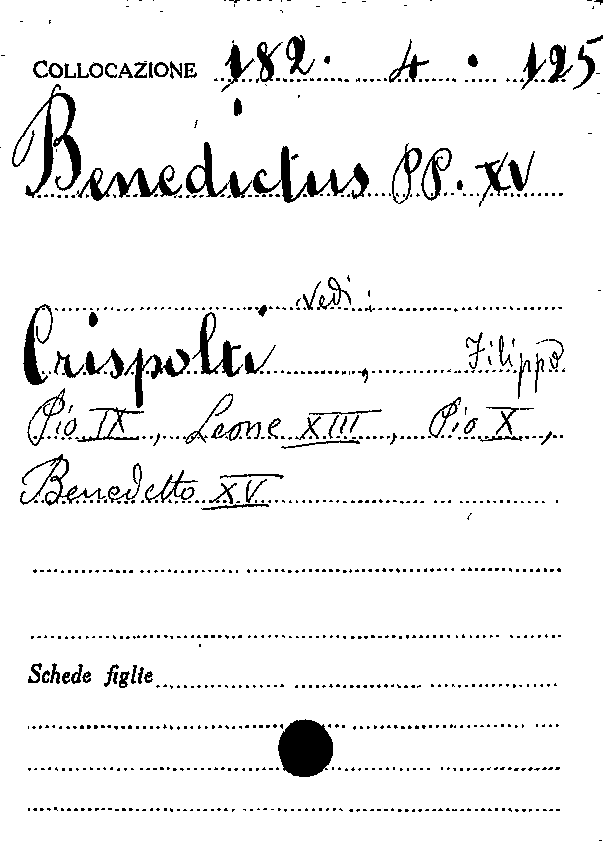 COLLOCAZIONE 182. 4. 125
Benedictus PP. XV
Vedi:
Crispolti, Filippo
Pio IX, Leone XIII, Pio X,
Benedetto XV
Schede figlie